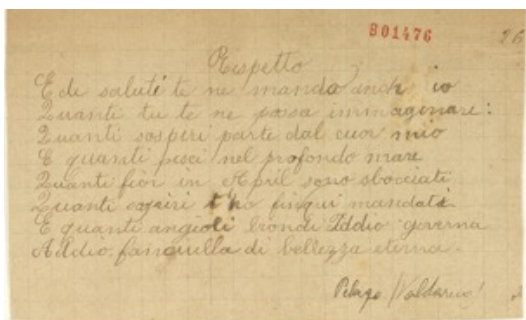 801476
26
Rispetto
E di saluti te ne mando anch io
Quanti tu te ne possa immaginare:
Quanti sospiri parte dal cuor mio
E quanti pesci nel profondo mare
Quanti fior in April sono sbocciati
Quanti sospiri t'ho finqui mandati
E quanti angioli biondi Iddio governa
Addio fanciulla di bellezza eterna.
Pelago (Valdarno)